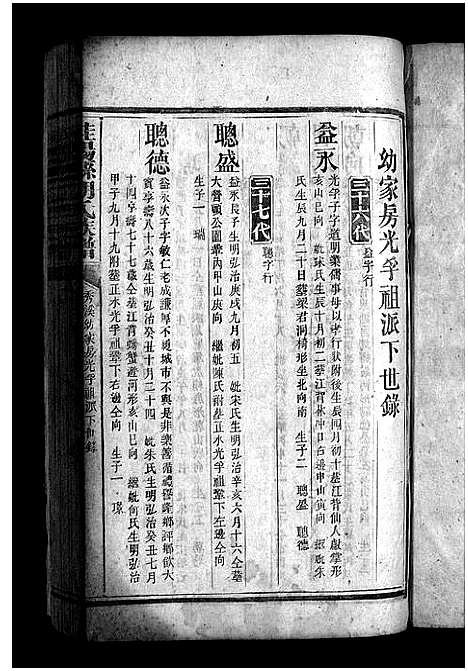 幼家房光孚祖派下世錄
三十六代 益字行
益永
光孚子字道明業儒事母以孝行狀附後生辰四月初十葬江背仙人獻掌形
亥山巳向 妣宋氏生辰十月初二葬江背林冲口右邊申山寅向 繼妣朱
氏生辰九月二十日葬翠君洞椅形坐北向南 生子二 聰盛 聰德
三十七代 聰字行
聰盛
益永長子生明弘治庚戌九月初五 妣宋氏生明弘治辛亥六月十六仝葬
大營頭公園寨丙甲山庚向 繼妣陳氏附葬正水光孚祖塋下左邊仝向
生子一 瑞
聰德
益永次子字敏仁老成謙厚不履城市不與是非樂善循禮徑隆鄉評鄉飲大
賓享壽八十六歲生明弘治癸丑十月二十四 妣朱氏生明弘治癸丑七月
十四享壽七十七歲仝葬江背螃蟹遊河形亥山巳向 繼妣何氏生明弘治
甲子九月十九附葬正水光孚祖塋下右邊仝向 生子一 璟
桂陽縣胡氏族譜
秀溪幼家房光孚祖派下世錄